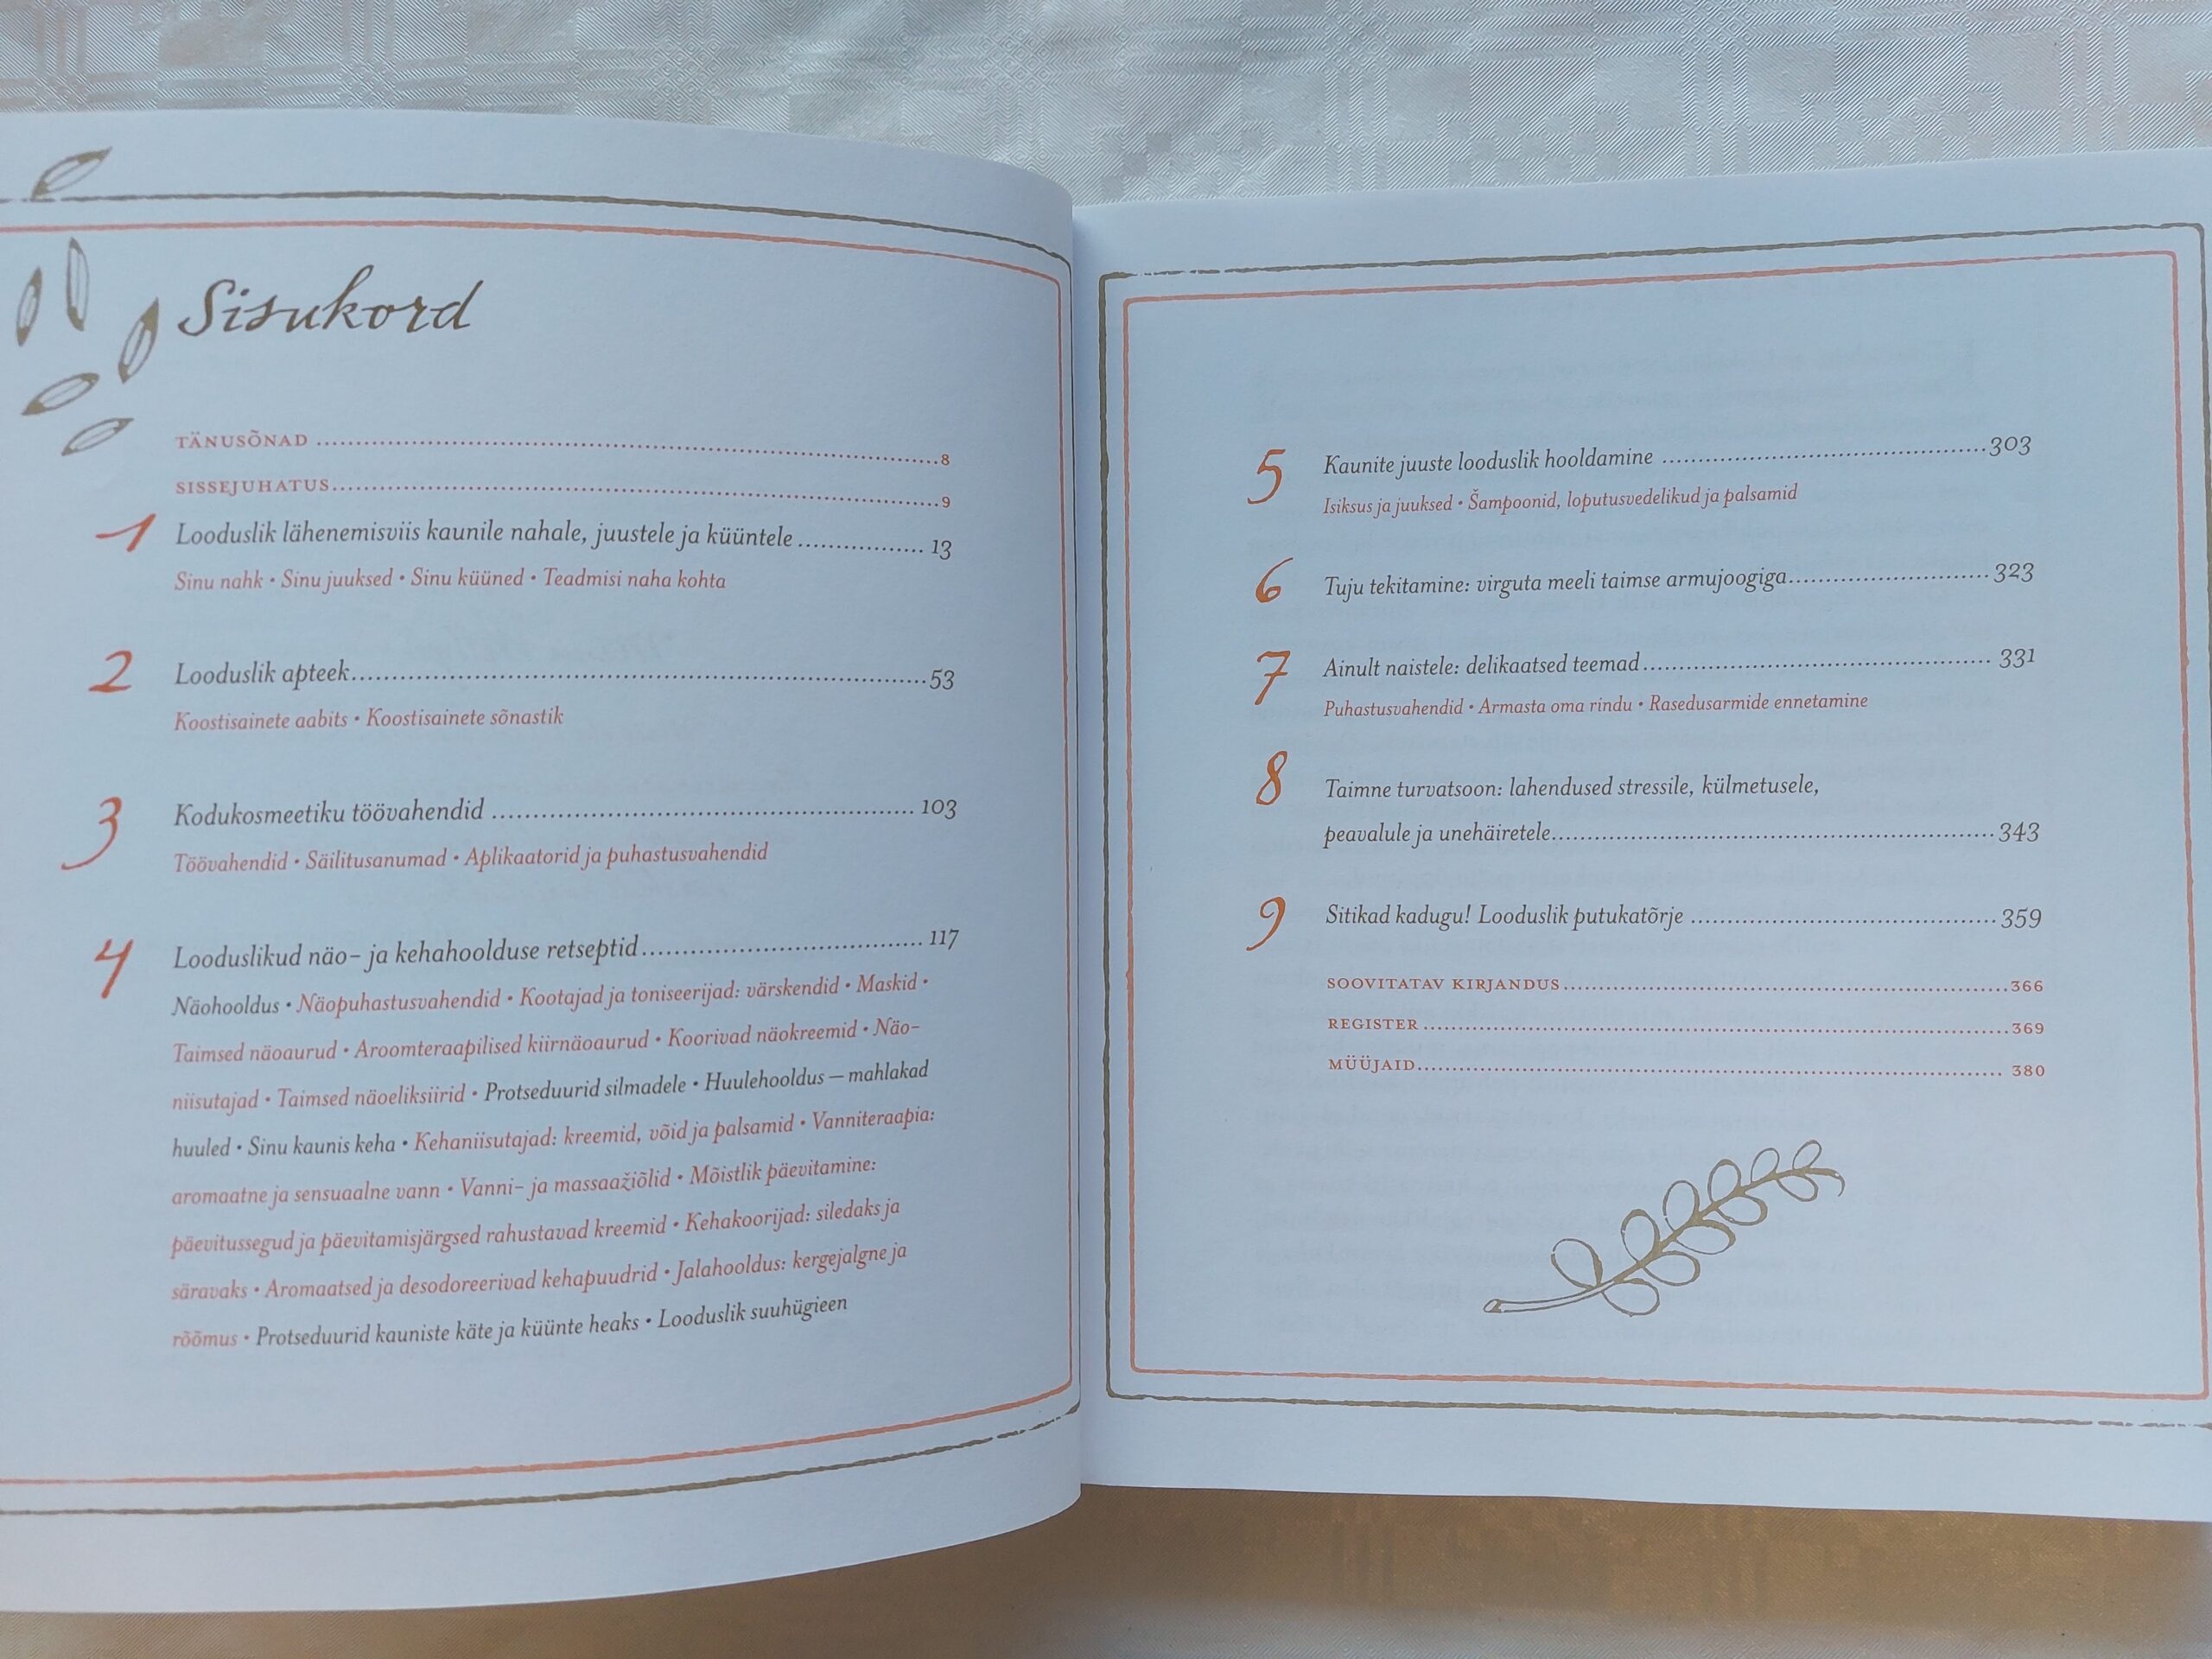 Sisukord
TÄNUSÕNAD ........ 8
SISSEJUHATUS ........ 9
1 Looduslik lähenemisviis kaunile nahale, juustele ja küüntele ........ 13
Sinu nahk • Sinu juuksed • Sinu küüned • Teadmisi naha kohta
2 Looduslik apteek ........ 53
Koostisainete aabits • Koostisainete sõnastik
3 Kodukosmeetiku töövahendid ........ 103
Töövahendid • Säilitusanumad • Aplikaatorid ja puhastusvahendid
4 Looduslikud näo- ja kehahoolduse retseptid ........ 117
Näohooldus • Näopuhastusvahendid • Kootajad ja toniseerijad: värskendid • Maskid •
Taimsed näoaurud • Aroomteraapilised kiirnäoaurud • Koorivad näokreemid • Näo-
niisutajad • Taimsed näoeliksiirid • Protseduurid silmadele • Huulehooldus – mahlakad
huuled • Sinu kaunis keha • Kehaniisutajad: kreemid, võid ja palsamid • Vanniteraapia:
aromaatne ja sensuaalne vann • Vanni- ja massaažiõlid • Mõistlik päevitamine:
päevitussegud ja päevitamisjärgsed rahustavad kreemid • Kehakoorijad: siledaks ja
säravaks • Aromaatsed ja desodoreerivad kehapuudrid • Jalahooldus: kergejalgne ja
rõõmus • Protseduurid kauniste käte ja küünte heaks • Looduslik suuhügieen
5 Kaunite juuste looduslik hooldamine ........ 303
Isiksus ja juuksed • Šampoonid, loputusvedelikud ja palsamid
6 Tuju tekitamine: virguta meeli taimse armujoogiga ........ 323
7 Ainult naistele: delikaatsed teemad ........ 331
Puhastusvahendid • Armasta oma rindu • Rasedusarmide ennetamine
8 Taimne turvatsoon: lahendused stressile, külmetusele,
peavalule ja unehäiretele ........ 343
9 Sitikad kadugu! Looduslik putukatõrje ........ 359
SOOVITATAV KIRJANDUS ........ 366
REGISTER ........ 369
MÜÜJAID ........ 380